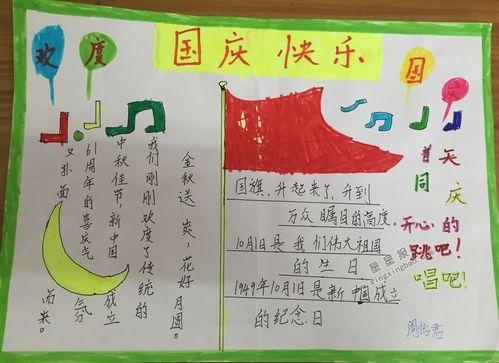 欢度
国庆快乐
国
金秋送爽，花好月圆。
我们刚刚欢度了传统的
中秋佳节，新中国成立
61周年的喜庆气氛
又扑面而来。
国旗，升起来了，升到
万众瞩目的高度。
10月1日是我们伟大祖国
的生日
1949年10月1日是新中国成立
的纪念日
普天
同庆
开心的
跳吧！
唱吧！
星星报
周怡君